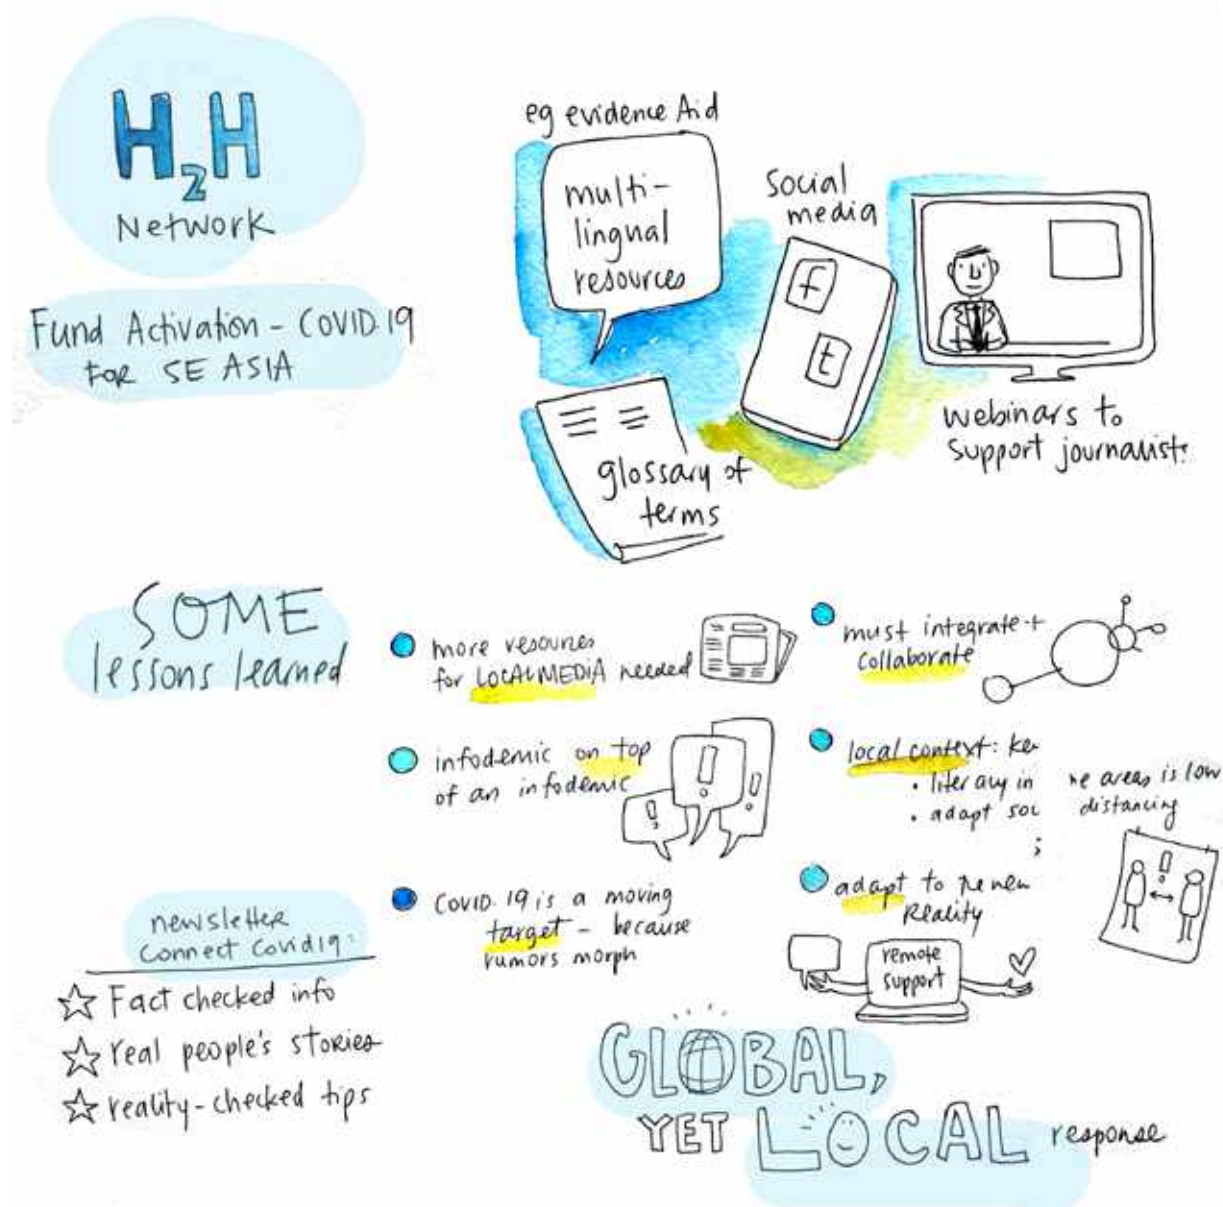 H2H
Network
Fund Activation - COVID 19
FOR SE ASIA
eg evidence Aid
multi-
lingual
resources
social
media
f
t
webinars to
support journalist
glossary of
terms
SOME
lessons learned
more resources
for LOCAL MEDIA needed
infodemic on top
of an infodemic
COVID 19 is a moving
target - because
rumors morph
must integrate +
collaborate
local context:
• literacy in
areas is low
• adapt
distancing
adapt to
Reality
remote
support
newsletter
Connect Covid19:
Fact checked info
real people's stories
reality-checked tips
GLOBAL,
YET LOCAL response